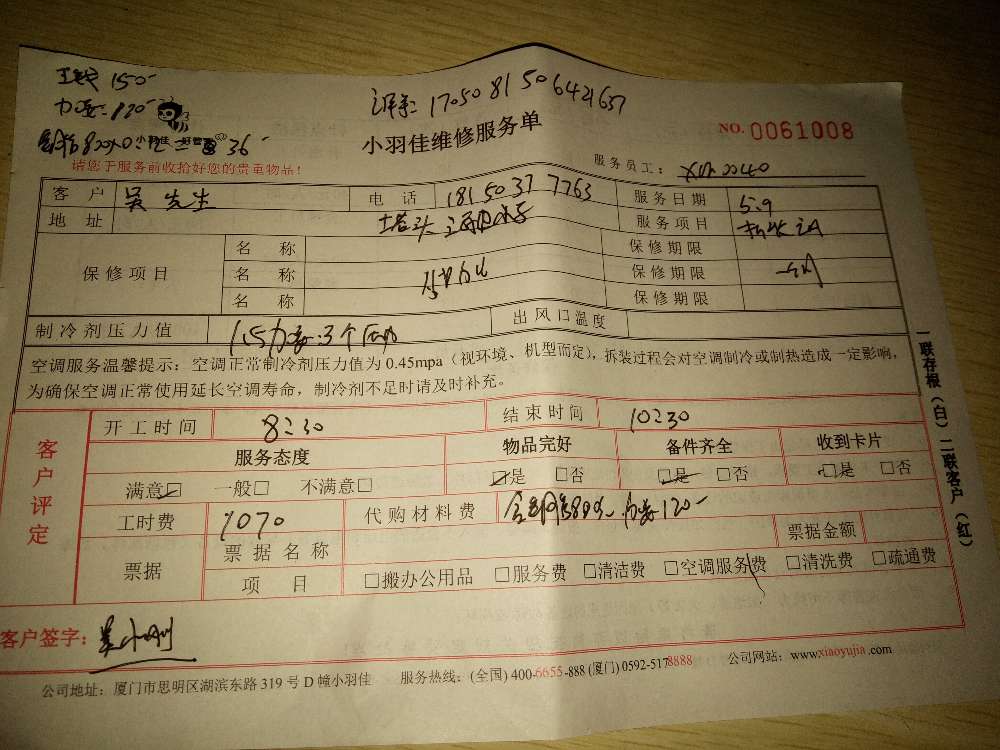 150-
120-
36-
1705081506421637
小羽佳维修服务单
NO. 0061008
请您于服务前收拾好您的贵重物品！
服务员工：
客 户 吴先生 电 话 18150377763 服务日期 5.9
地 址 塔头 服务项目
保修项目
名 称 保修期限
名 称 保修期限 一个月
名 称 保修期限
制冷剂压力值 3个压力 出风口温度
空调服务温馨提示：空调正常制冷剂压力值为 0.45mpa（视环境、机型而定），拆装过程会对空调制冷或制热造成一定影响，
为确保空调正常使用延长空调寿命，制冷剂不足时请及时补充。
客户评定
开工时间 8:30 结束时间 10:30
服务态度 物品完好 备件齐全 收到卡片
满意□ 一般□ 不满意□ □是 □否 □是 □否 □是 □否
工时费 1070 代购材料费 120-
票据 票据名称 票据金额
项 目 □搬办公用品 □服务费 □清洁费 □空调服务费 □清洗费 □疏通费
客户签字：
公司地址：厦门市思明区湖滨东路 319 号 D 幢小羽佳 服务热线：(全国) 400-6655-888 (厦门) 0592-5178888 公司网站：www.xiaoyujia.com
一联存根（白）二联客户（红）